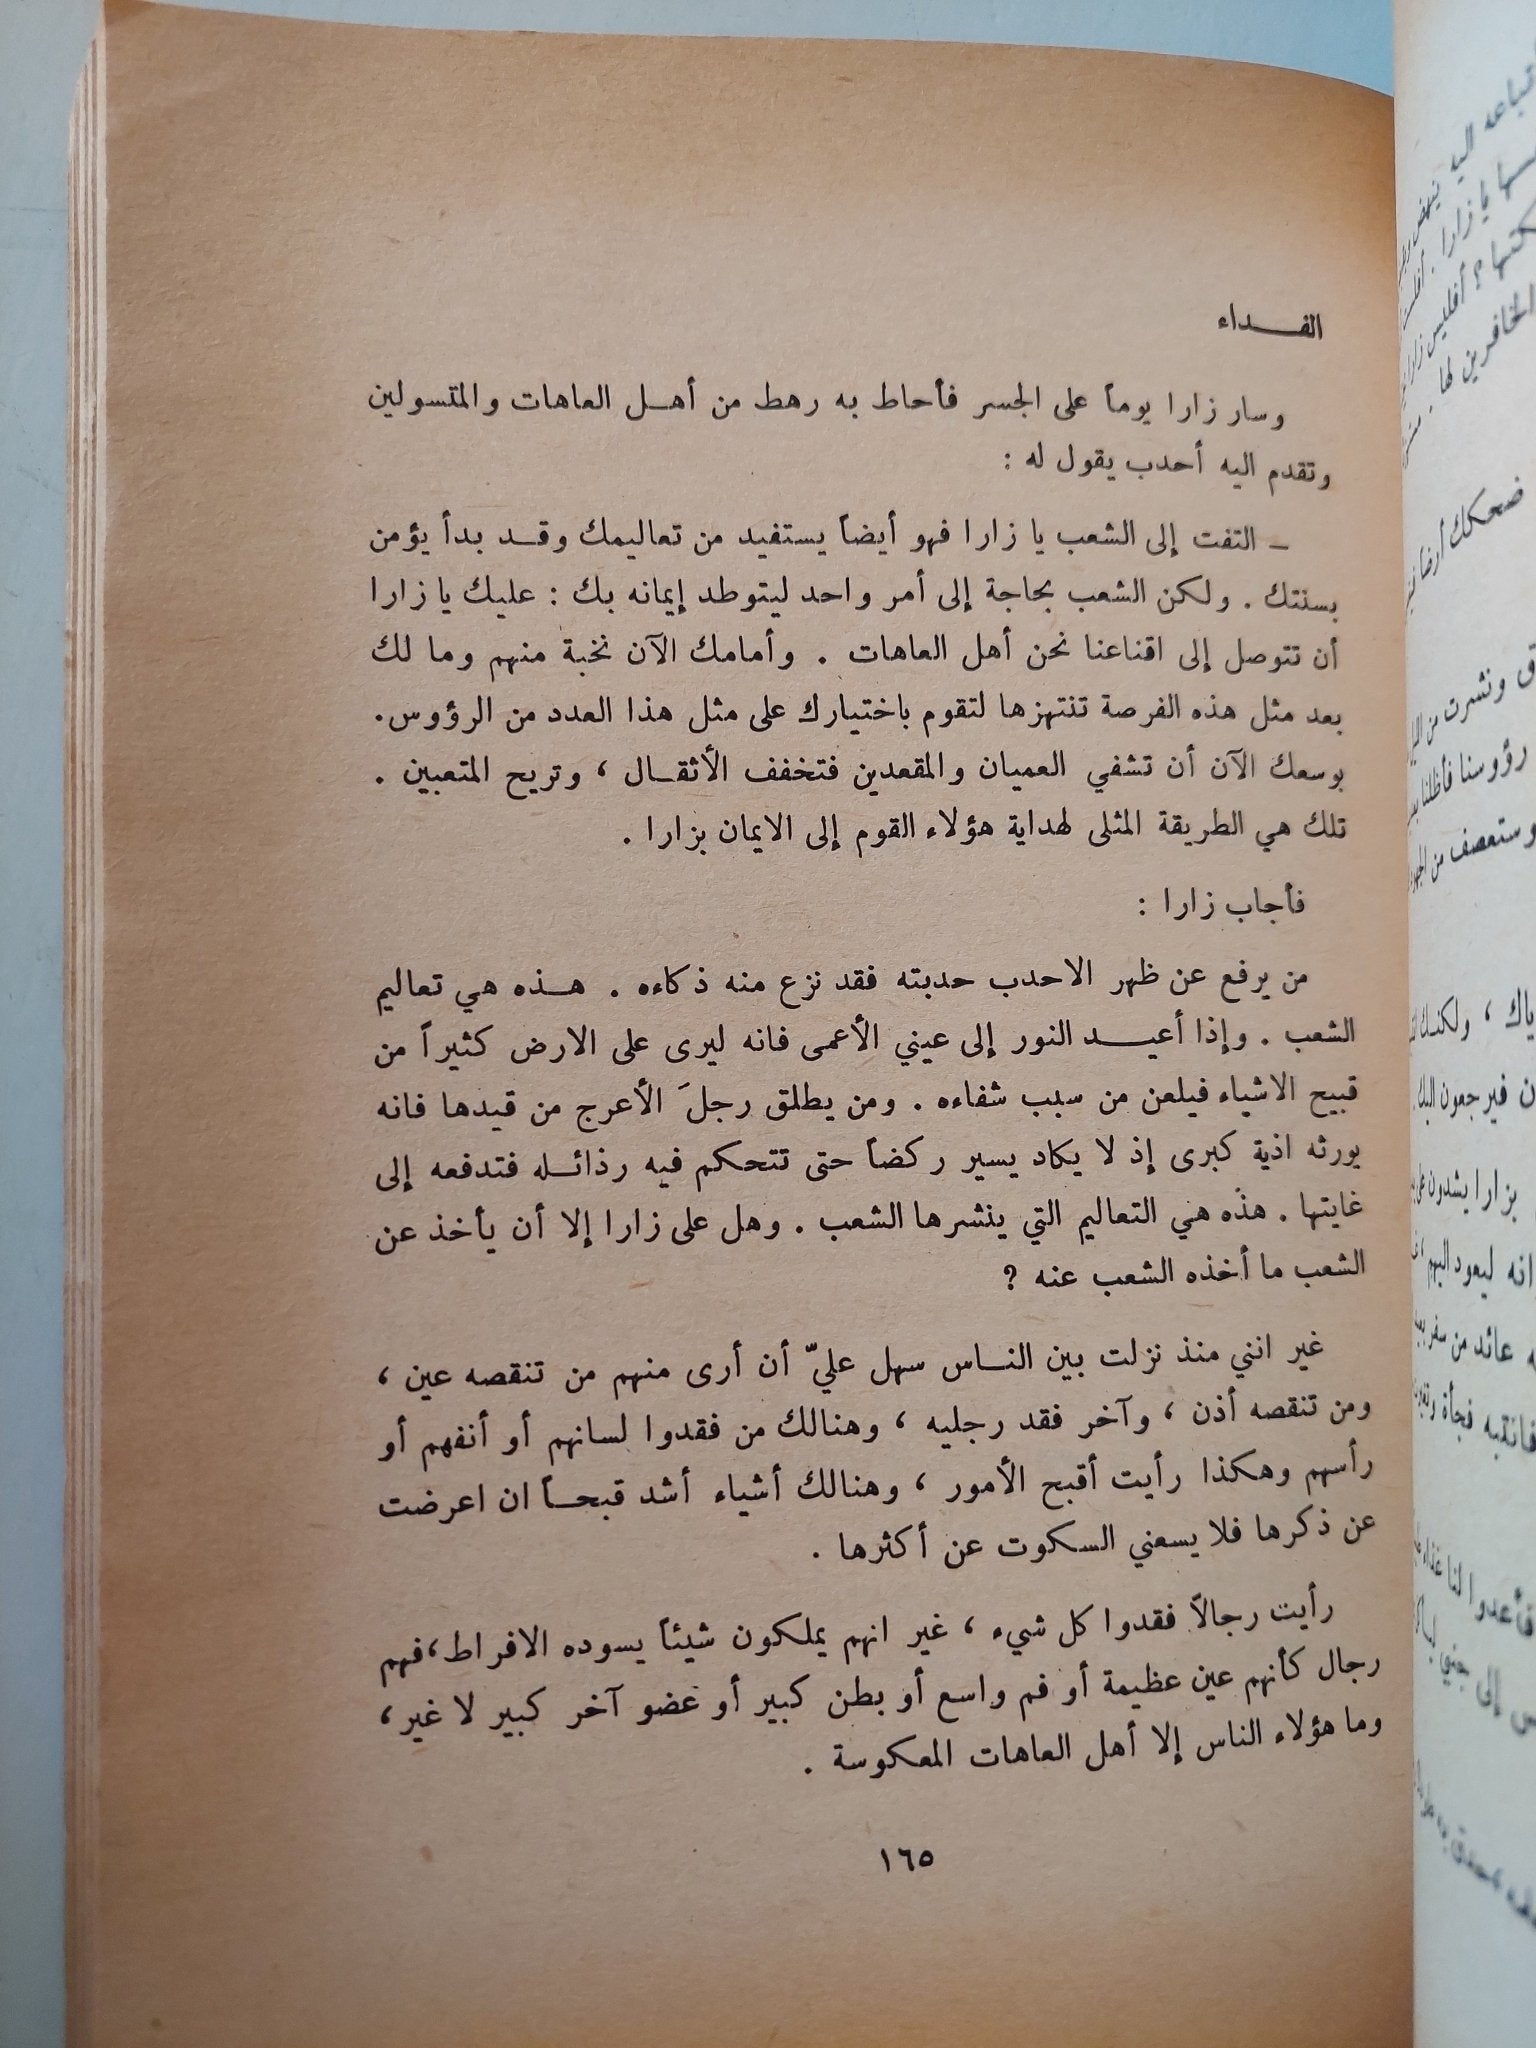 الفـــداء
وسار زارا يوماً على الجسر فأحاط به رهط من أهـل العاهات والمتسولين
وتقدم اليه أحدب يقول له :
ـ التفت إلى الشعب يا زارا فهو أيضاً يستفيد من تعاليمك وقـد بدأ يؤمن
بسنتك . ولكن الشعب بحاجة إلى أمر واحد ليتوطد إيمانه بك : عليك يا زارا
أن تتوصل إلى اقناعنا نحن أهل العاهات . وأمامك الآن نخبة منهم وما لك
بعد مثل هذه الفرصة تنتهزها لتقوم باختيارك على مثل هذا العدد من الرؤوس.
بوسعك الآن أن تشفي العميان والمقعدين فتخفف الأثقـال ، وتريح المتعبين .
تلك هي الطريقة المثلى لهداية هؤلاء القوم إلى الايمان بزارا .
فأجاب زارا :
من يرفع عن ظهر الاحدب حدبته فقد نزع منه ذكاءه . هـذه هي تعاليم
الشعب . وإذا أعيـــد النور إلى عيني الأعمى فانه ليرى على الارض كثيراً من
قبيح الاشياء فيلعن من سبب شفاءه . ومن يطلق رجلَ الأعرج من قيدها فانه
يورثه اذية كبرى إذ لا يكاد يسير ركضاً حتى تتحكم فيه رذائـله فتدفعه إلى
غايتها . هذه هي التعاليم التي ينشرها الشعب . وهل على زارا إلا أن يأخذ عن
الشعب ما أخذه الشعب عنه ?
غير انني منذ نزلت بين النـاس سهل عليّ أن أرى منهم من تنقصه عين ،
ومن تنقصه أذن ، وآخر فقد رجليه ، وهنالك من فقدوا لسانهم أو أنفهم أو
رأسهم وهكذا رأيت أقبح الأمور ، وهنالك أشياء أشد قبحـاً ان اعرضت
عن ذكرها فلا يسعني السكوت عن أكثرها .
رأيت رجالاً فقدوا كل شيء ، غير انهم يملكون شيئاً يسوده الافراط،فهم
رجال كأنهم عين عظيمة أو فم واسع أو بطن كبير أو عضو آخر كبير لا غير،
وما هؤلاء الناس إلا أهل العاهات المعكوسة .
١٦٥
اليه
يا زارا .
ضحكك
ونشرت من
رؤوسنا
وستعصف من
ولكنك
فيرجعون اليك
بزارا يشدون
انه ليعود اليهم
عائد من سفر
فانتبه فجأة
فأعدوا لنا